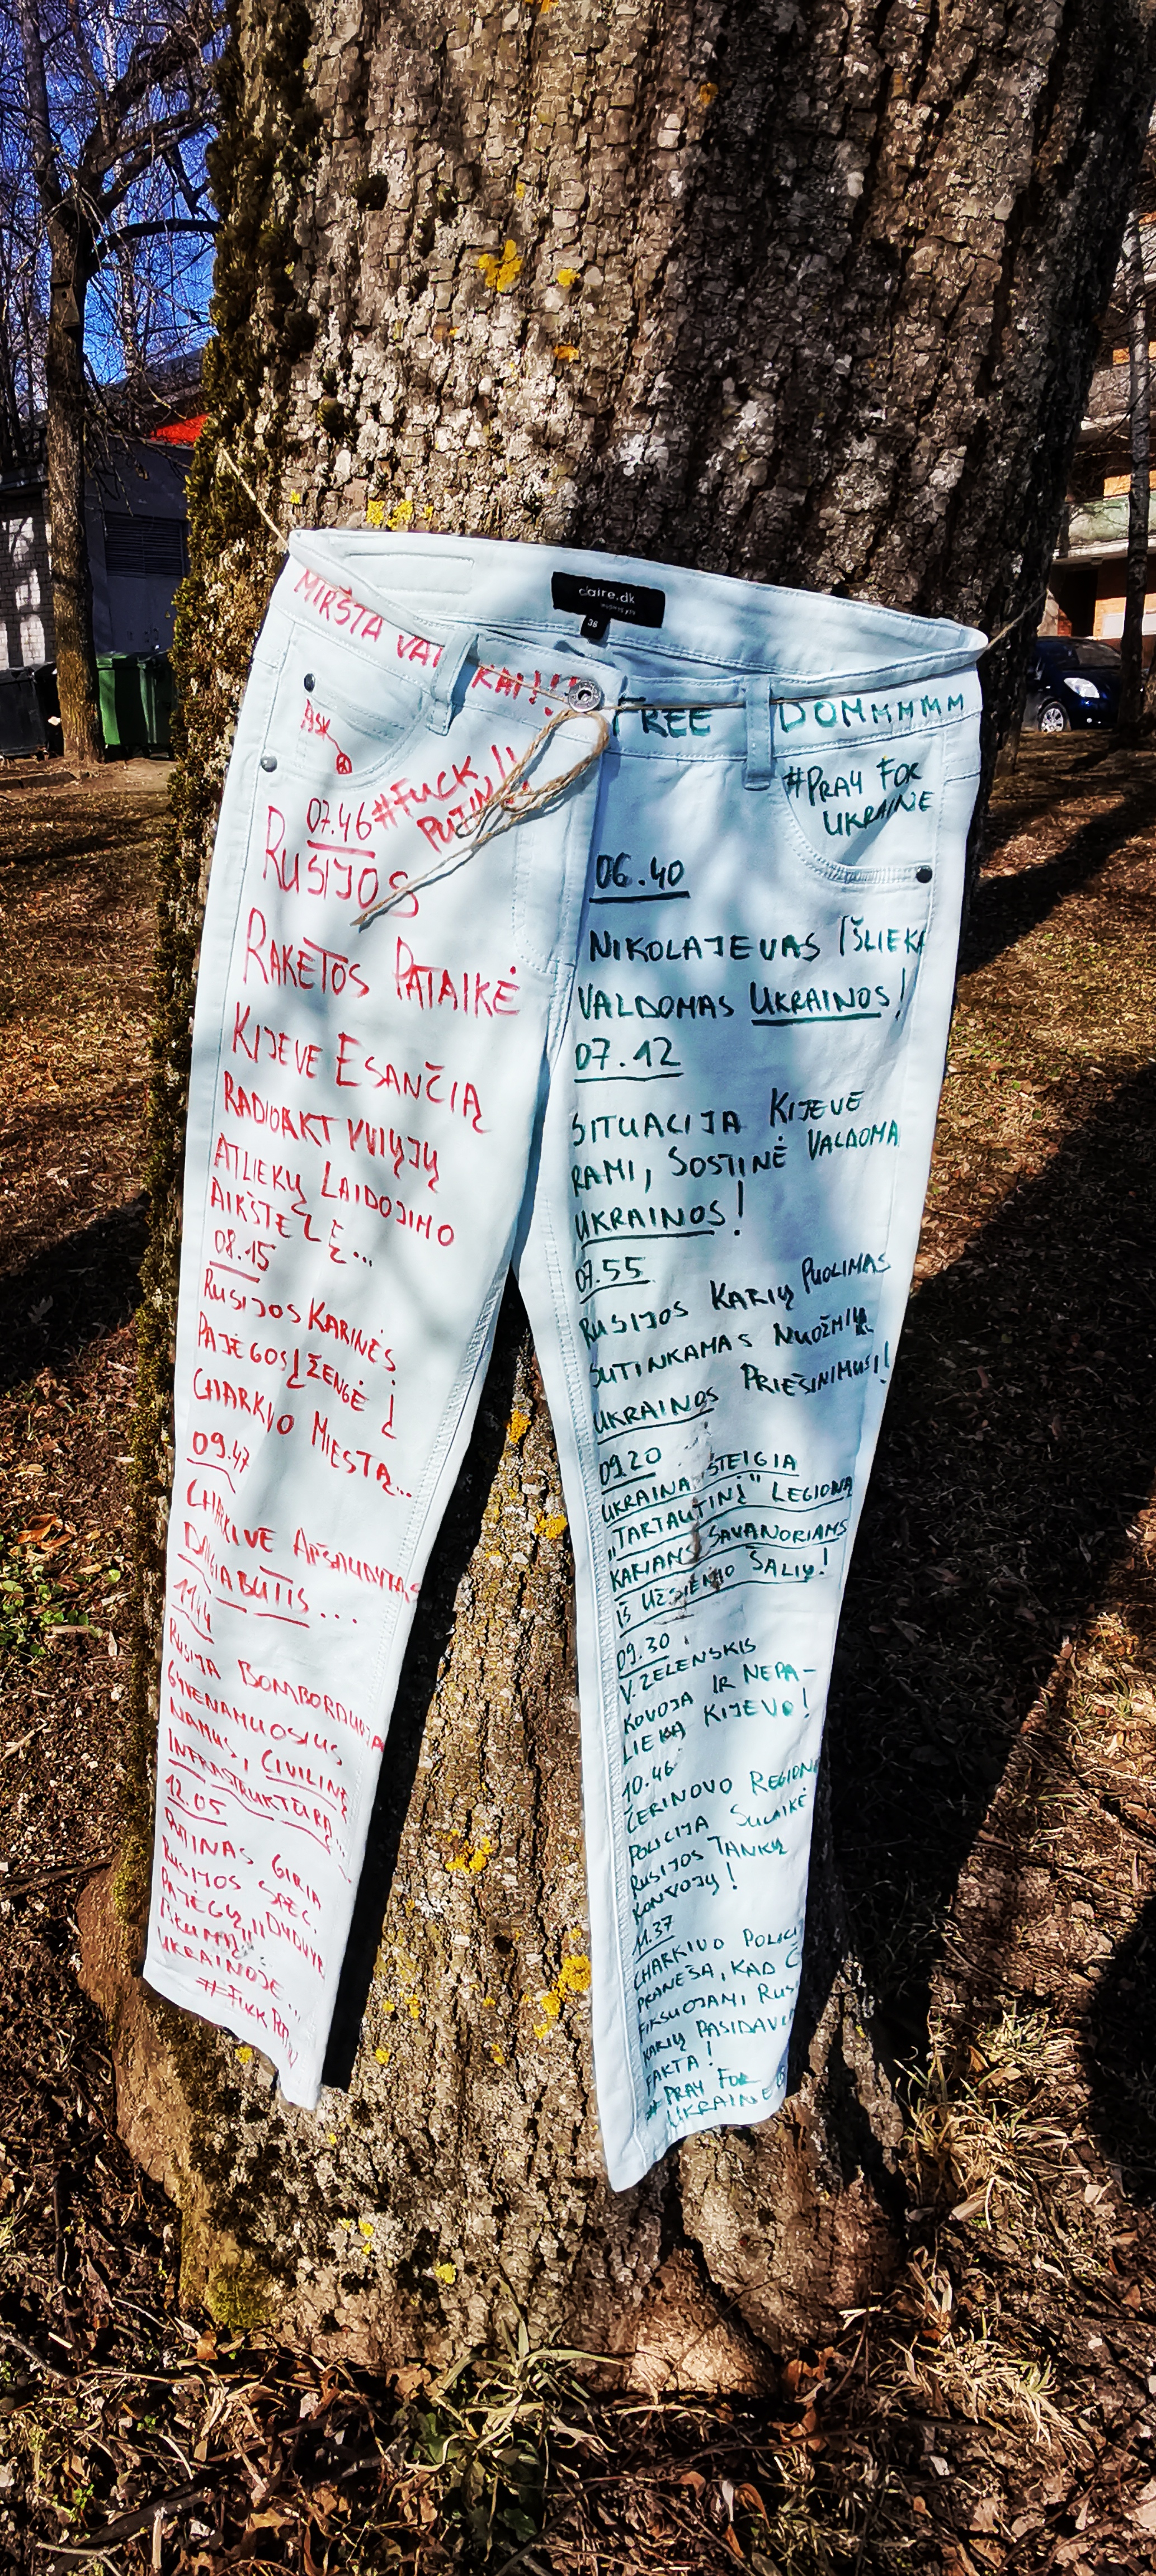 claire.dk
36
MIRŠTA VAI KAI!!!
ASK
#FUCK
PUTIN!!
07.46
RUSIJOS
RAKETOS PATAIKĖ
KIJEVE ESANČIĄ
RADIOAKTYVIŲJŲ
ATLIEKŲ LAIDOJIMO
AIKŠTELĘ...
08.15
RUSIJOS KARINĖS
PAJĖGOS ĮŽENGĖ Į
CHARKIVO MIESTĄ...
09.47
CHARKIVE APŠAUDYTAS
DAUGIABUTIS...
11.44
RUSIJA BOMBORDUOJA
GYVENAMUOSIUS
NAMUS, CIVILINĘ
INFRASTRUKTŪRĄ...
12.05
PUTINAS GIRIA
RUSIJOS SPEC.
PAJĖGŲ „DIDVY
RIŠKUMĄ"
UKRAINOJE...
#FUCK PUTIN
FREE DOMMMMM
#PRAY FOR
UKRAINE
06.40
NIKOLAJEVAS IŠLIEKA
VALDOMAS UKRAINOS!
07.12
SITUACIJA KIJEVE
RAMI, SOSTINĖ VALDOMA
UKRAINOS!
07.55
RUSIJOS KARIŲ PUOLIMAS
SUTINKAMAS NUOŽMIU
UKRAINOS PRIEŠINIMUSI!
09.20
UKRAINA STEIGIA
„TARTAUTINĮ" LEGIONĄ
KARIAMS SAVANORIAMS
IŠ UŽSIENIO ŠALIŲ!
09.30
V. ZELENSKIS
KOVOJA IR NEPA-
LIEKA KIJEVO!
10.46
ČERINOVO REGIONE
POLICIJA SULAIKĖ
RUSIJOS TANKŲ
KONVOJŲ!
11.37
CHARKIVO POLICI
PRANEŠA, KAD Č
FIKSUOJAMI RUS
KARIŲ PASIDAVI
FAKTAI!
#PRAY FOR
UKRAINE